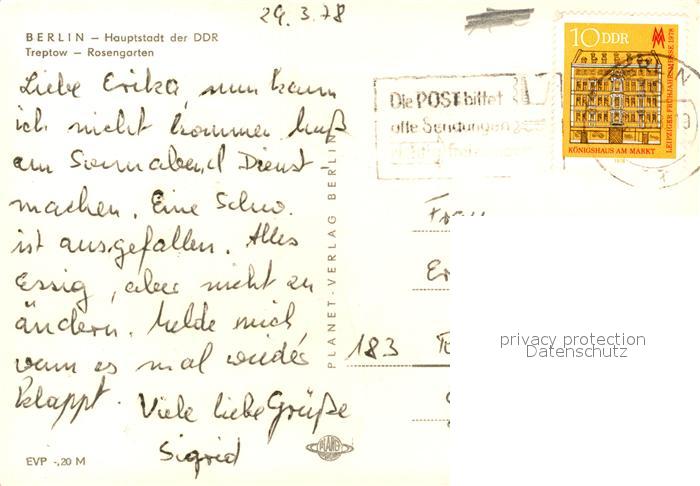 29.3.78
BERLIN – Hauptstadt der DDR
Treptow – Rosengarten
Liebe Erika, nun kann
ich nicht kommen. Muß
am Sonnabend Dienst
machen. Eine Schw.
ist ausgefallen. Alles
Essig, aber nicht zu
ändern. Melde mich,
wenn es mal wieder
klappt. Viele liebe Grüße
Sigrid
EVP -,20 M
PLANET-VERLAG BERLIN
PLANET
Die POST bittet
alle Sendungen
10 DDR
MM
KÖNIGSHAUS AM MARKT
LEIPZIGER FRÜHJAHRSMESSE 1978
1978
Frau
Er
183
privacy protection
Datenschutz